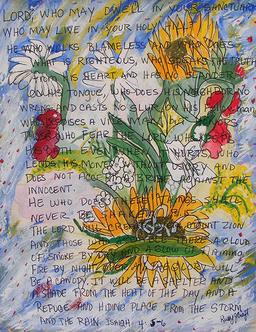 LORD, WHO MAY DWELL IN YOUR SANCTUARY
WHO MAY LIVE IN YOUR HOLY HILL
HE WHO WALKS BLAMELESS AND WHO DOES
WHAT IS RIGHTEOUS, WHO SPEAKS THE TRUTH
HEART AND HAS NO SLANDER
ON HIS TONGUE, WHO DOES HIS NEIGHBOR NO
WRONG AND CASTS NO SLUR ON HIS
DESPISES A VILE MAN BUT HONORS
THOSE WHO FEAR THE LORD, WHO KEEPS
HIS OATH EVEN WHEN IT HURTS, WHO
LENDS HIS MONEY WITHOUT USURY AND
DOES NOT ACCEPT A BRIBE AGAINST THE
INNOCENT.
HE WHO DOES THESE THINGS SHALL
NEVER BE
THE LORD WILL MOUNT ZION
AND THOSE WHO THERE A CLOUD
OF SMOKE BY DAY AND A GLOW OF
FIRE BY NIGHT, OVER ALL THE GLORY WILL
BE A CANOPY. IT WILL BE A SHELTER AND
A SHADE FROM THE HEAT OF THE DAY AND A
REFUGE AND HIDING PLACE FROM THE STORM
AND THE RAIN. ISAIAH 4 5-6